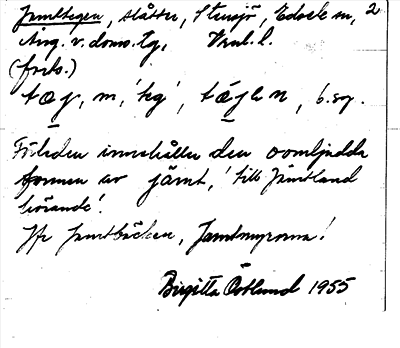 Jamttegen, slåtter, Stensjö, Edsele sn, 2
Ång. v. doms. Tg, Vsnl. l.
(forts.)
tæg, m, 'teg', tægen, b. sg.
Förleden innehåller den oomljudda
formen av jämt, 'till Jämtland
hörande'.
Jfr Jamtbäcken, Jamtmyrorna!
Birgitta Östlund 1955